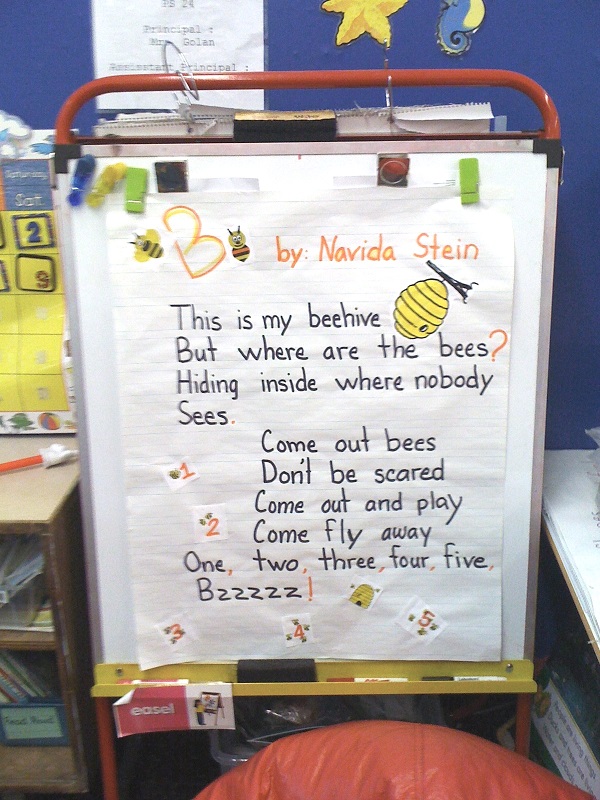 PS 24
Principal :
Mrs. Golan
Assistant Principal :
Saturday
Sat.
2
9
B by: Navida Stein
This is my beehive
But where are the bees?
Hiding inside where nobody
Sees.
Come out bees
Don't be scared
Come out and play
Come fly away
One, two, three, four, five,
Bzzzzz!
1
2
3
4
5
easel
Read Aloud